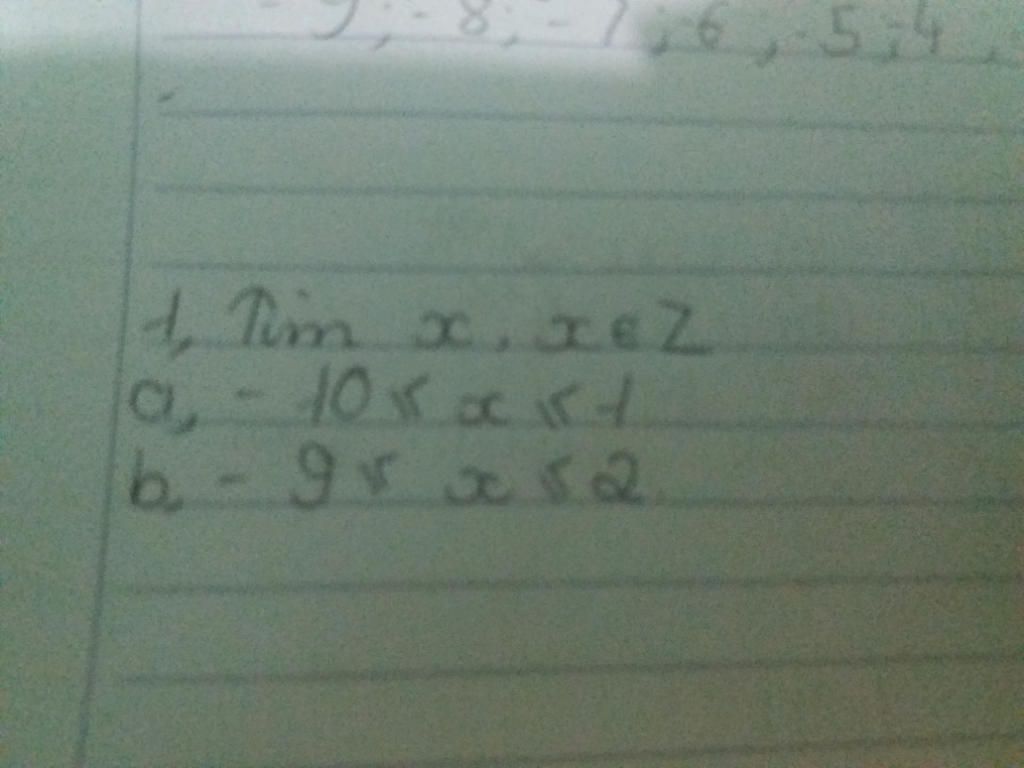 - 9 ; - 8 ; - 7 ; -6 , -5 ; -4 ,
1, Tìm x, x ∈ Z
a, - 10 ≤ x ≤ 1
b, - 9 ≤ x ≤ 2